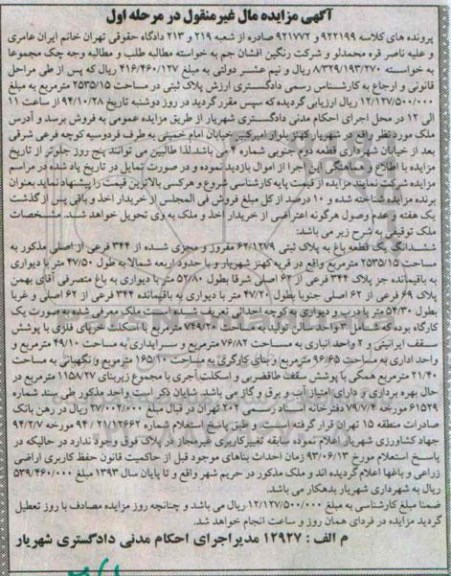 آگهی مزایده مال غیرمنقول در مرحله اول
پرونده های کلاسه ۹۲۲۱۹۹ و ۹۲۱۷۷۲ صادره از شعبه ۲۱۹ و ۲۱۳ دادگاه حقوقی تهران خانم ایران عامری
و علیه ناصر قره محمدلو و شرکت رنگین افشان جم به خواسته مطالبه طلب و مطالبه وجه چک مجموعا
به خواسته ۸/۳۲۹/۱۹۳/۲۷۰ ریال و نیم عشر دولتی به مبلغ ۴۱۶/۴۶۰/۱۲۷ ریال که پس از طی مراحل
قانونی و ارجاع به کارشناس رسمی دادگستری ارزش پلاک ثبتی در مساحت ۲۵۳۵/۱۵ مترمربع به مبلغ
۱۲/۱۲۷/۵۰۰/۰۰۰ ریال ارزیابی گردیده که سپس مقرر گردید در روز دوشنبه تاریخ ۹۴/۱۰/۲۸ از ساعت ۱۱
الی ۱۲ در محل اجرای احکام مدنی دادگستری شهریار از طریق مزایده عمومی به فروش برسد و آدرس
ملک موردنظر واقع در شهریار کهنز بلوار امیرکبیر خیابان امام خمینی به طرف فردوسیه کوچه فرعی شرقی
بعد از خیابان شهرداری قطعه دوم جنوبی شماره ۴ می باشد. لذا طالبین می توانند پنج روز جلوتر از تاریخ
مزایده با اطلاع و هماهنگی این اجرا از اموال بازدید نموده و در صورت تمایل در تاریخ یاد شده در مراسم
مزایده شرکت نمایند مزایده از قیمت پایه کارشناسی شروع و هرکسی بالاترین قیمت را پیشنهاد نماید بعنوان
برنده مزایده شناخته شده و ۱۰ درصد از کل مبلغ فروش فی المجلس از خریدار اخذ و باقی پس از گذشت
یک هفته و عدم وصول هرگونه اعتراضی از خریدار اخذ و ملک به وی تحویل خواهد شد. مشخصات
ملک توقیفی به شرح زیر می باشد:
ششدانگ یک قطعه باغ به پلاک ثبتی ۶۲/۱۲۷۹ مفروز و مجزی شده از ۳۴۴ فرعی از اصلی مذکور به
مساحت ۲۵۳۵/۱۵ مترمربع واقع در قریه کهنز شهریار و با حدود اربعه شمالا به طول ۴۷/۵۰ متر با دیواری
به باقیمانده جز پلاک ۳۴۴ فرعی از ۶۲ اصلی شرقا بطول ۵۲/۸۰ متر با دیواری به باغ متصرفی آقای بهمن
پلاک ۶۹ فرعی از ۶۲ اصلی جنوبا بطول ۴۷/۲۰ متر با دیواری به باقیمانده ۳۴۴ فرعی از ۶۲ اصلی و غربا
بطول ۵۴/۳۰ متر با درب و دیواری به کوچه احداثی تعریف شده است ملک معرفی شده به صورت یک
کارگاه بوده که شامل ۳ واحد سالن تولید به مساحت ۷۴۹/۲۰ مترمربع با اسکلت خرپای فلزی با پوشش
سقف ایرانیتی و ۲ واحد انباری به مساحت ۷۶/۸۲ مترمربع و سرایداری به مساحت ۴۹/۱۰ مترمربع و
واحد اداری به مساحت ۹۶/۶۵ مترمربع و بنای کارگری به مساحت ۱۶۵/۱۰ مترمربع و نگهبانی به مساحت
۲۱/۴۰ مترمربع همگی با پوشش سقف طاقضربی و اسکلت آجری با مجموع زیربنای ۱۱۵۸/۲۷ مترمربع در
حال بهره برداری و دارای امتیاز آب و برق و گاز می باشد. شایان ذکر است واحد مذکور طی سند شماره
۶۱۵۲۹ مورخه ۷۹/۷/۴ دفترخانه اسناد رسمی ۲۰۴ تهران در قبال مبلغ ۲۷/۰۰۲/۶۰۰ ریال در رهن بانک
صادرات منطقه ۱۵ تهران قرار گرفته است. و طبق پاسخ استعلام شماره ۹۴/۲۱۲/۱۲۶۶۲ مورخه ۹۴/۲/۷
جهاد کشاورزی شهریار اعلام نموده سابقه تغییرکاربری غیرمجاز در پلاک فوق وجود ندارد در حالیکه در
پاسخ استعلام مورخ ۹۳/۰۶/۱۳ زمان احداث بناهای موجود قبل از حاکمیت قانون حفظ کاربری اراضی
زراعی و باغها اعلام گردیده اند و ملک مذکور در حریم شهر واقع و تا پایان سال ۱۳۹۳ مبلغ ۵۳۹/۴۶۰/۰۰۰
ریال به شهرداری شهریار بدهکار می باشد.
ضمنا مبلغ کارشناسی به مبلغ ۱۲/۱۲۷/۵۰۰/۰۰۰ ریال می باشد و چنانچه روز مزایده مصادف با روز تعطیل
گردید مزایده در فردای همان روز و ساعت انجام خواهد شد.
م الف : ۱۲۹۲۷ مدیر اجرای احکام مدنی دادگستری شهریار